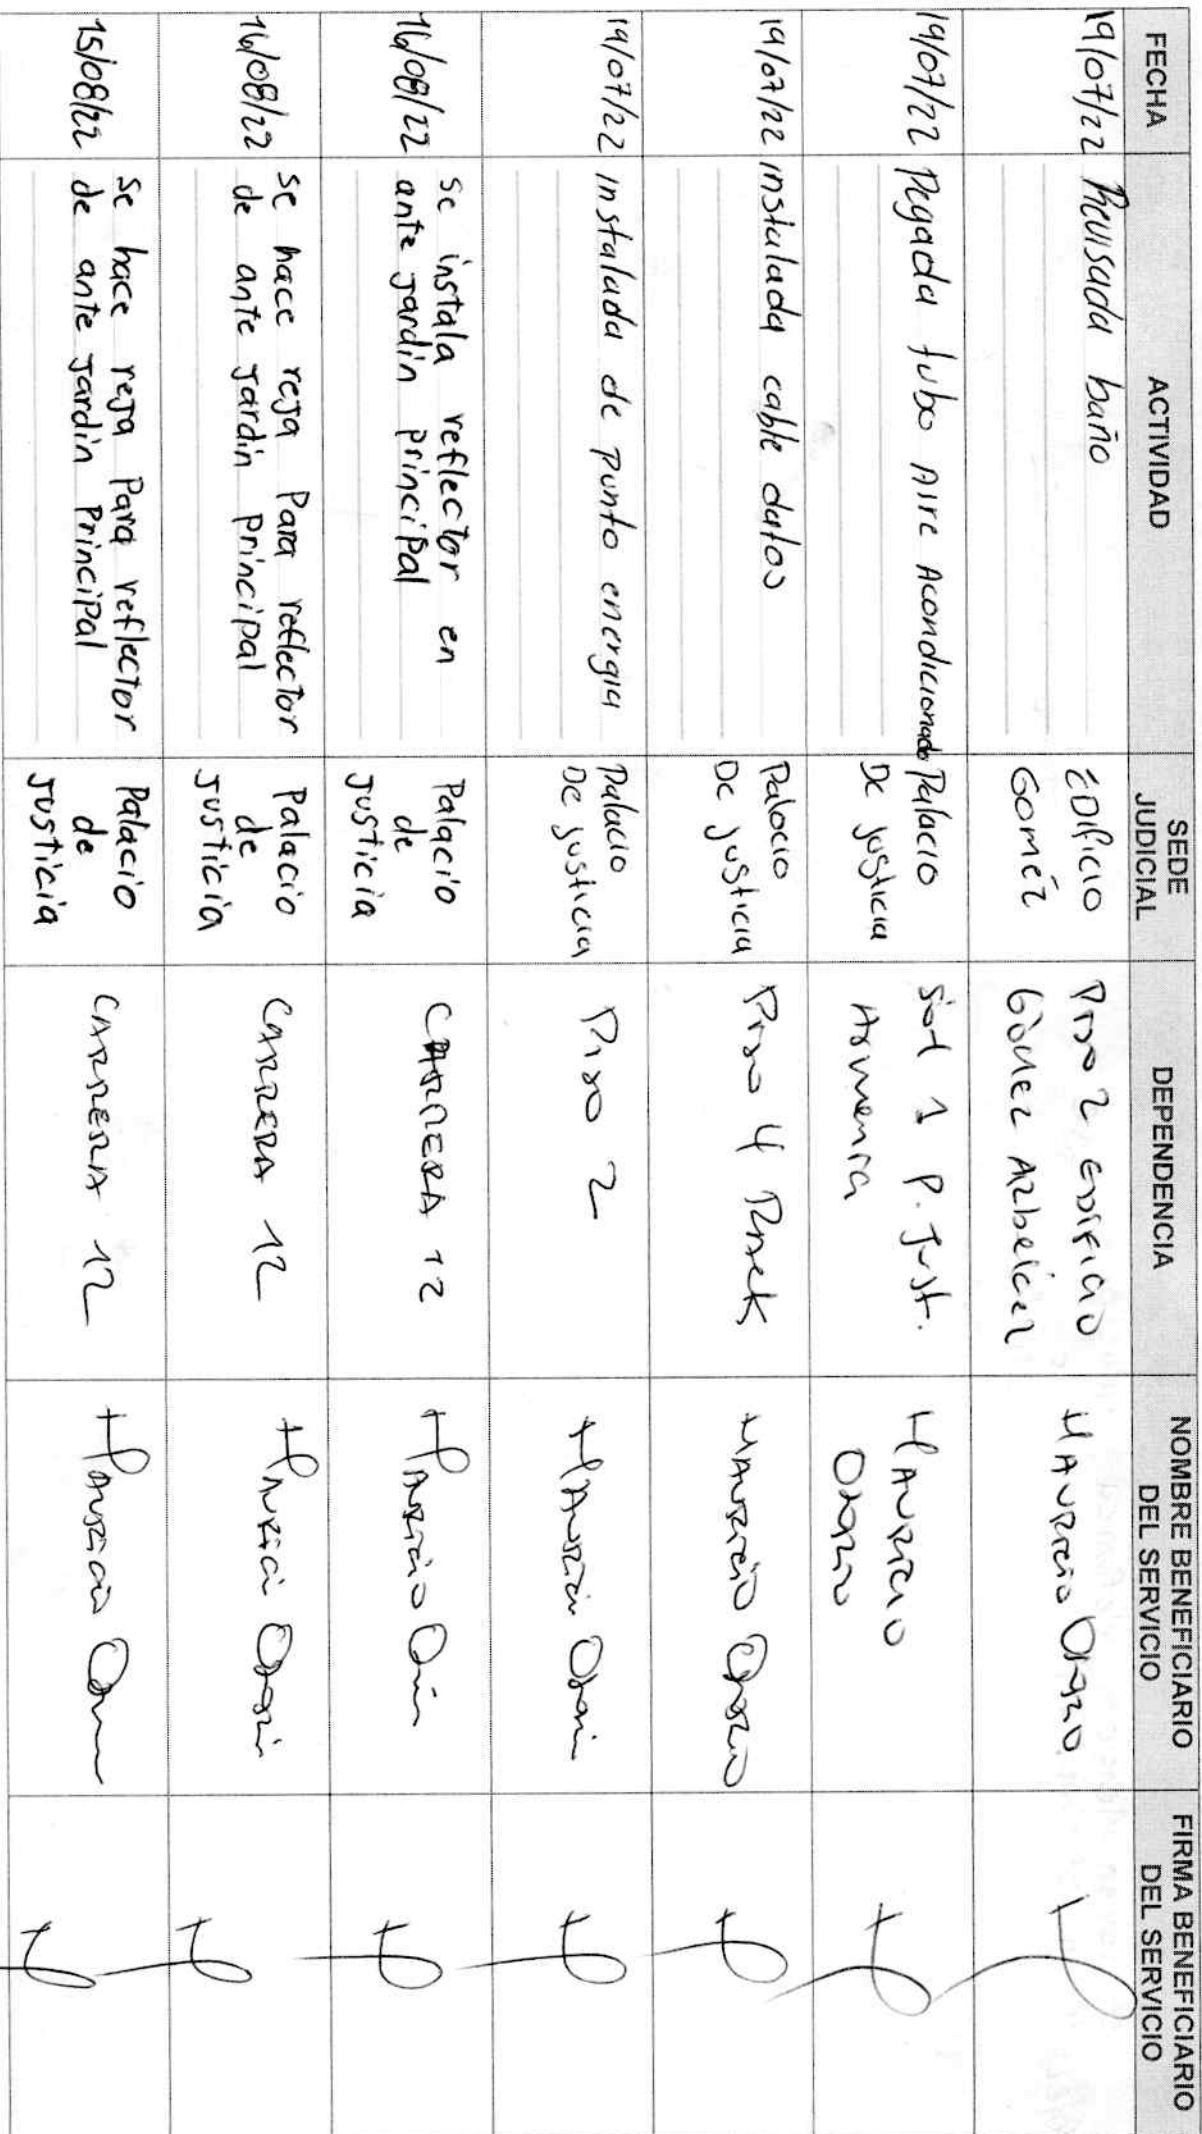 FECHA
ACTIVIDAD
SEDE
JUDICIAL
DEPENDENCIA
NOMBRE BENEFICIARIO
DEL SERVICIO
FIRMA BENEFICIARIO
DEL SERVICIO
19/07/22
Revisada baño
EDificio
Goméz
Piso 2 EDIFICIO
Gómez Arbeláez
MAURICIO Orozco
19/07/22
Pegada tubo Aire Acondicionado
Palacio
De justicia
1 P. Just.
Armenia
MAURICIO
Orozco
19/07/22
instalada cable datos
Palacio
De justicia
Piso 4 Rack
MAURICIO Orozco
19/07/22
instalada de punto energia
Palacio
De justicia
Piso 2
MAURICIO
16/08/22
Se instala reflector en
ante jardín principal
Palacio
de
justicia
CARRERA 12
MAURICIO
16/08/22
Se hace reja Para reflector
de ante jardín principal
Palacio
de
justicia
CARRERA 12
MAURICIO
15/08/22
Se hace reja Para reflector
de ante jardín Principal
Palacio
de
justicia
CARRERA 12
MAURICIO